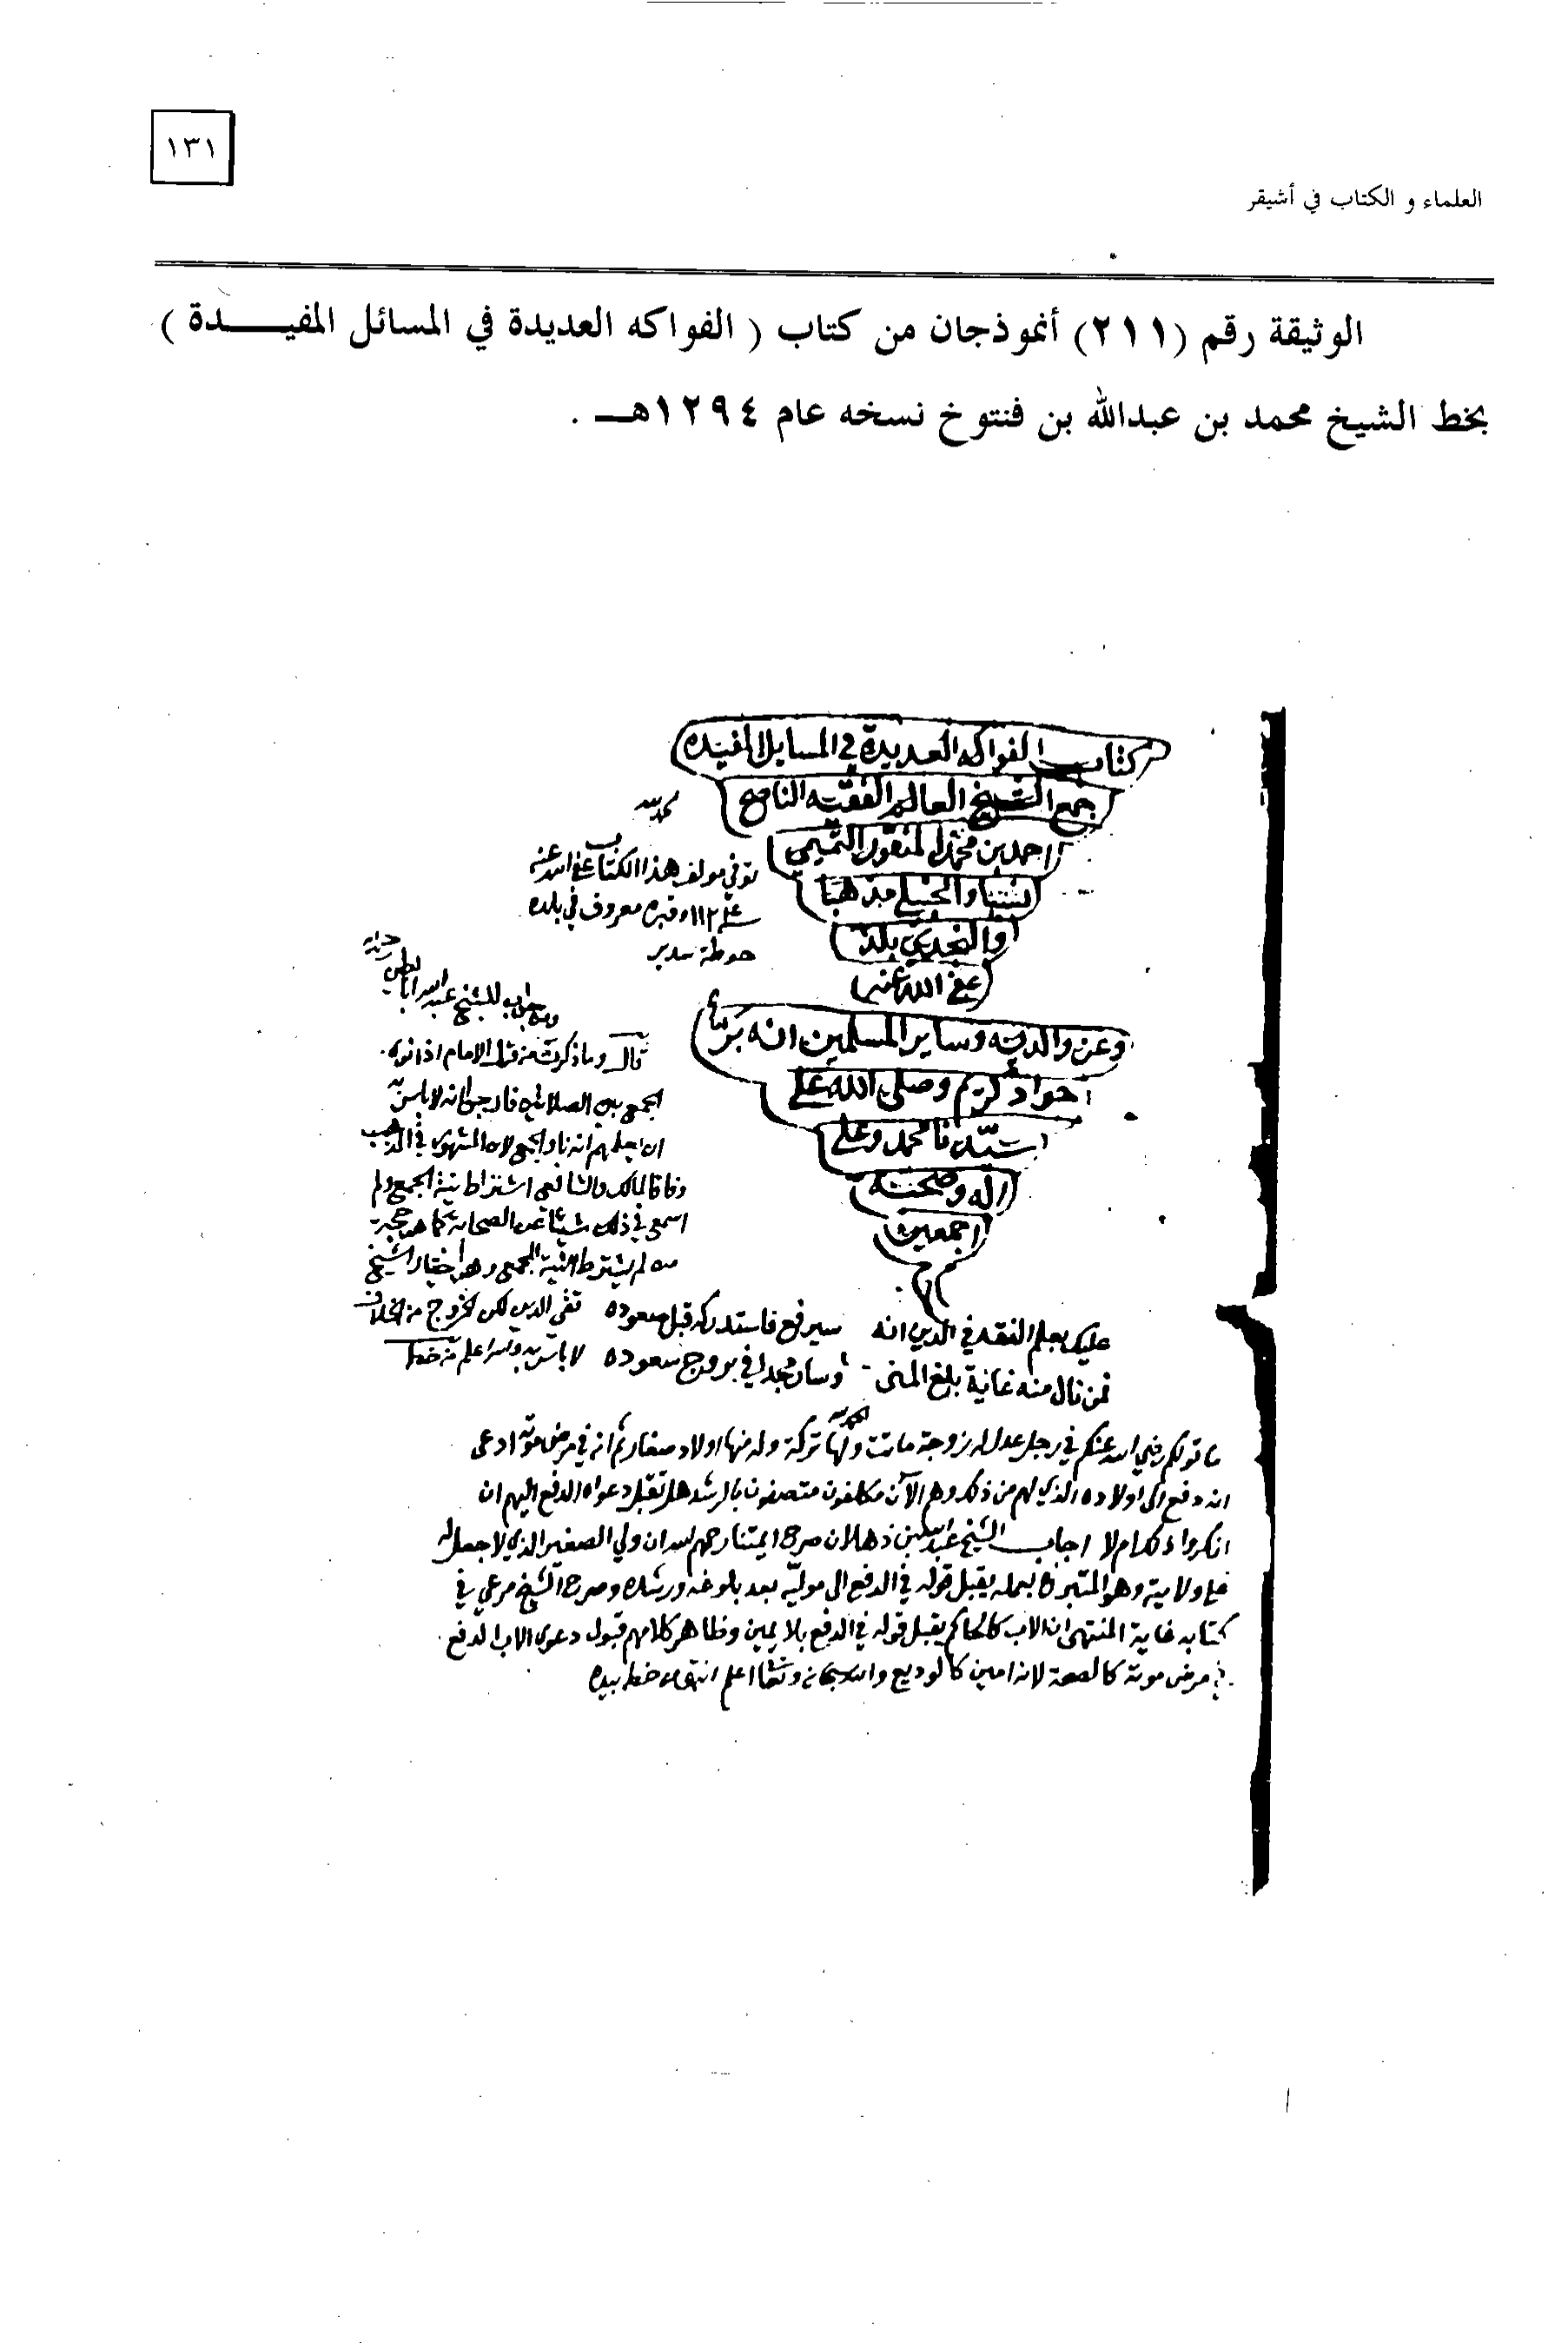 ١٣١
العلماء و الكتاب في أشيقر
الوثيقة رقم (٢١١) أنموذجان من كتاب ( الفواكه العديدة في المسائل المفيــــدة )
بخط الشيخ محمد بن عبدالله بن فنتوخ نسخه عام ١٢٩٤هـــ .
كتاب الفواكه العديدة في المسايل المفيده
جمع الشيخ العالم الفقيه الناصح
احمد بن محمد المنقور التميمي
نسبا والحنبلي مذهبا
والنجدي بلدا
عفى الله عنه
وعن والديه وساير المسلمين انه بر
جواد كريم وصلى الله على
سيدنا محمد وعلى
اله وصحبه
اجمعين
م
الحمد لله
توفي مولف هذا الكتاب عفى الله عنه
١١٢ وقبره معروف في بلده
حوطة سدير
ومن جواب للشيخ عبدالله ابابطين
قال وما ذكرت من قبل الامام اذا نوى
الجمع بين الصلاتين فارجوا انه لا باس
ان يعلمهم انه ناو الجمع لان المشهور في المذهب
وفاقا لمالك والشافعي اشتراط نية الجمع ولم
اسمع في ذلك شيئا عن الصحابة كما هو حجة
من لم يشترط النية للجمع وهو اختيار الشيخ
تقي الدين لكن للخروج من الخلاف
لا باس به والله اعلم من خطه
عليك بعلم الفقه في الدين انه سيرفع فاستدركه قبل صعوده
فمن نال منه غاية بلغ المنى وسار مجدا في بروج سعوده
الحمد لله
ما قولكم رضي الله عنكم في رجل عدل له زوجة ماتت ولها تركة وله منها اولاد صغار ثم انه في مرض موته ادعى
انه دفع الى اولاده الذي لهم من ذلك وهم الآن مكلفون متصفون بالرشد هل تقبل دعواه الدفع اليهم ان
انكروا ذلك ام لا اجاب الشيخ عبدالله بن ذهلان صرح ايمتنا رحمهم الله ان ولي الصغير الذي لا جعل له
على ولايته وهو المتبرع بعمله يقبل قوله في الدفع الى موليه بعد بلوغه ورشده وصرح الشيخ مرعي في
كتابه غاية المنتهى ان الاب كالحاكم يقبل قوله في الدفع بلا يمين وظاهر كلامهم قبول دعوى الاب الدفع
في مرض موته كالصحة لانه امين كالوديع والله سبحانه وتعالى اعلم انتهى من خطه بيده